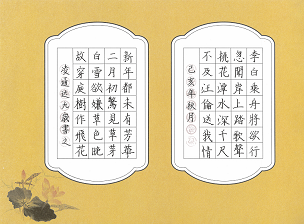 李白乘舟將欲行
忽聞岸上踏歌聲
桃花潭水深千尺
不及汪倫送我情
己亥年秋月
新年都未有芳華
二月初驚見草芽
白雪卻嫌春色晚
故穿庭樹作飛花
九歲書之